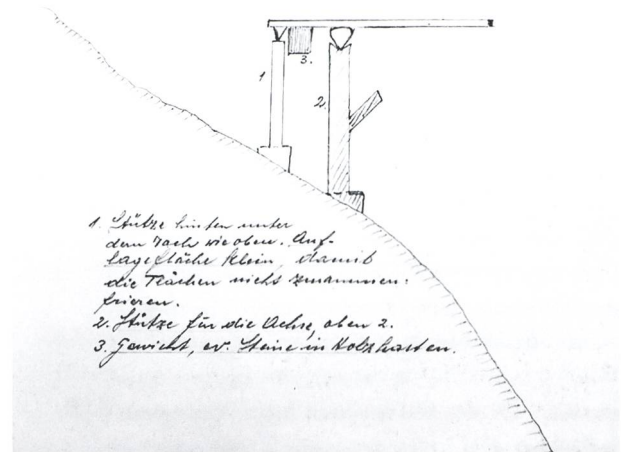 3.
1
2
1. Stütze hinten unter
dem Dach wie oben. Auf-
lagefläche klein, damit
die Flächen nicht zusammen-
frieren.
2. Stütze für die Achse, oben 2.
3. Gewicht, ev. Steine in Holzkasten.